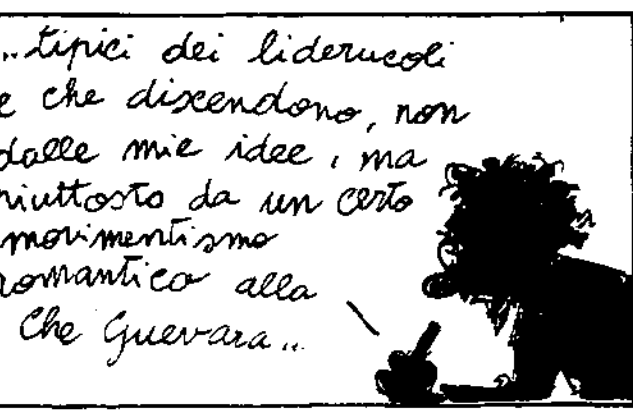 ..tipici dei liderucoli
e che discendono, non
dalle mie idee, ma
piuttosto da un certo
movimentismo
romantico alla
Che Guevara...